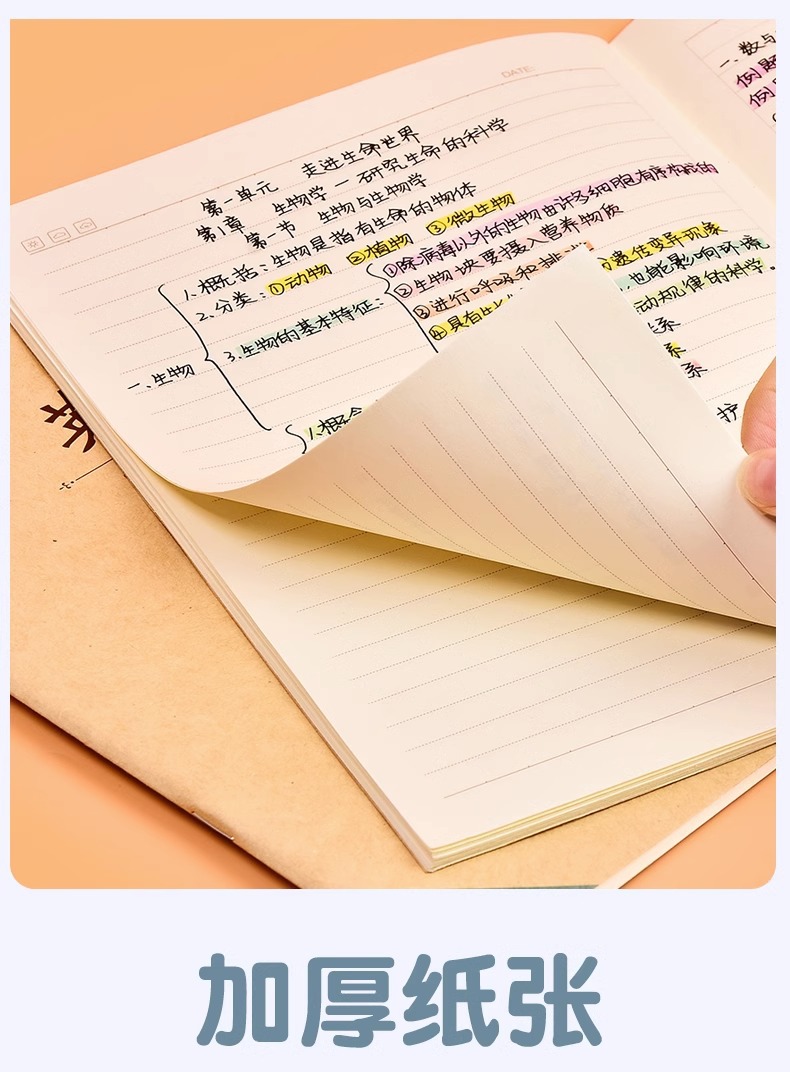 DATE:
第一单元 走进生命世界
第1章 生物学—研究生命的科学
第一节 生物与生物学
1.概括:生物是指有生命的物体
2.分类:①动物 ②植物 ③微生物
3.生物的基本特征:
①除病毒以外的生物由许多细胞有序构成的
②生物块要摄入营养物质
③进行呼吸和排
④具有生
遗传变异现象
,也能影响环境
动规律的科学。
系
系
护
一、生物
1.概
一、数与
例题
例
加厚纸张